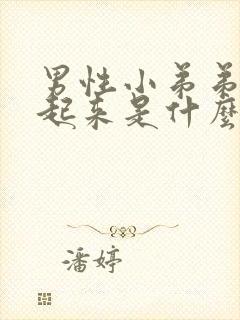 男性小弟弟
起来是什麼
潘婷